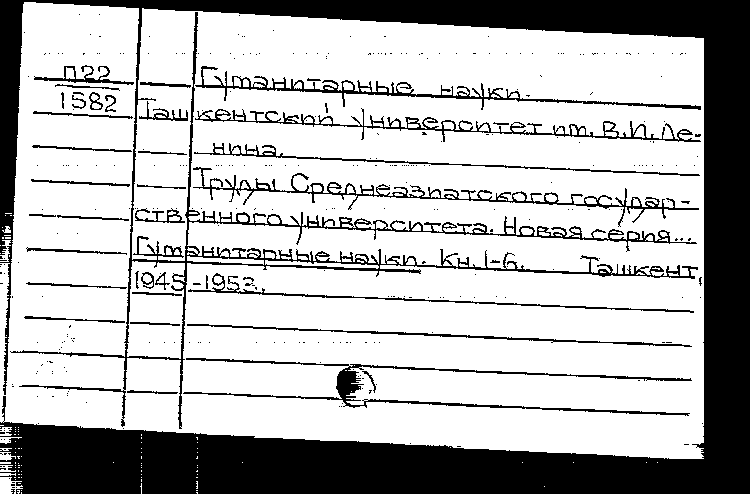 П22
1582
Гуманитарные науки.
Ташкентский университет им. В.И. Ле-
нина.
Труды Среднеазиатского государ-
ственного университета. Новая серия...
Гуманитарные науки. Кн. 1-6. Ташкент,
1945-1953.